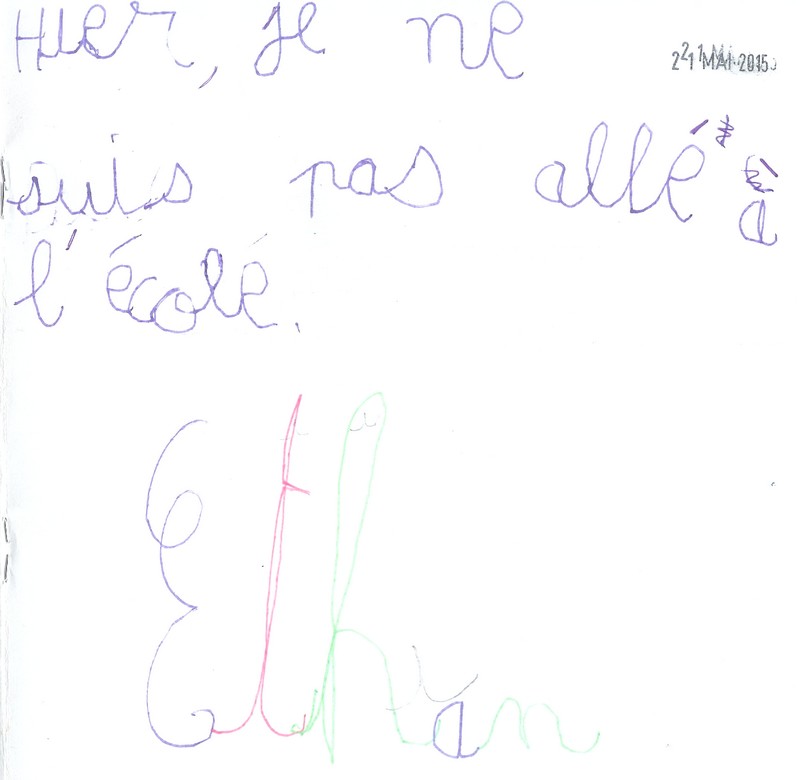 Hier, je ne
MAI 2015
suis pas allé à
l'écolé.
Ethan